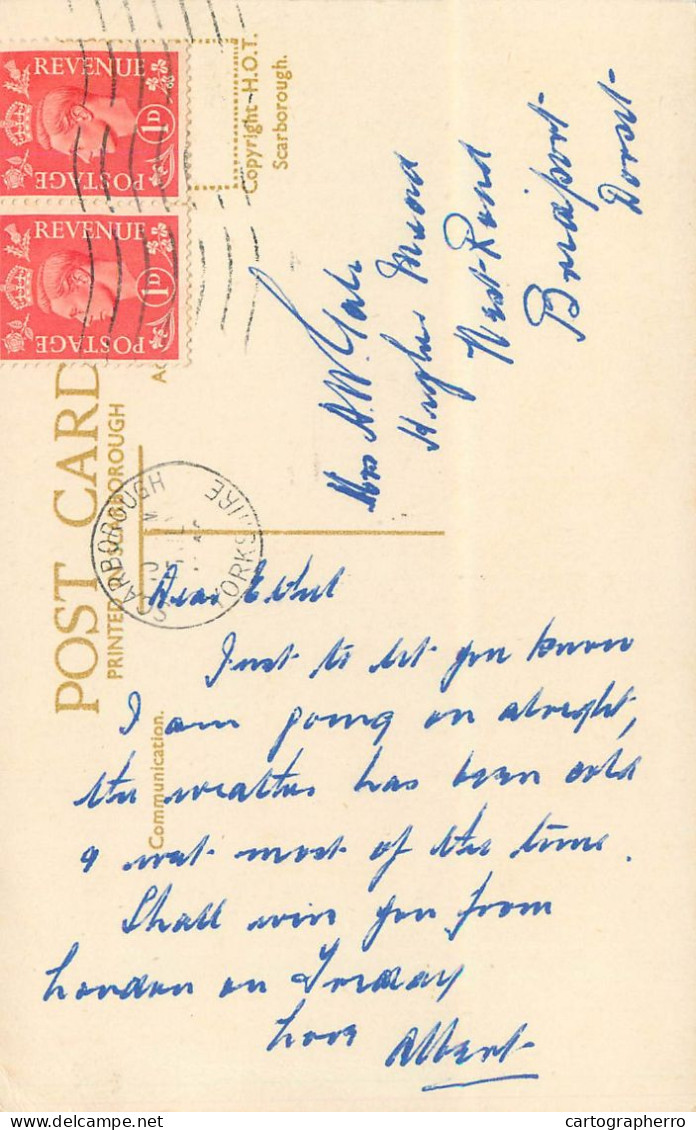 REVENUE
1D
POSTAGE
REVENUE
1D
POSTAGE
Copyright-H.O.T.
Scarborough.
POST CARD
PRINTED IN SCARBOROUGH
SCARBOROUGH
YORKSHIRE
Mrs A.W. Gale
Mead
West Road
Bridport
Dorset
Communication.
Dear Ethel
Just to let you know
I am going on alright,
the weather has been cold
& wet most of the time.
Shall wire you from
London on
Love
Albert
cartographerro